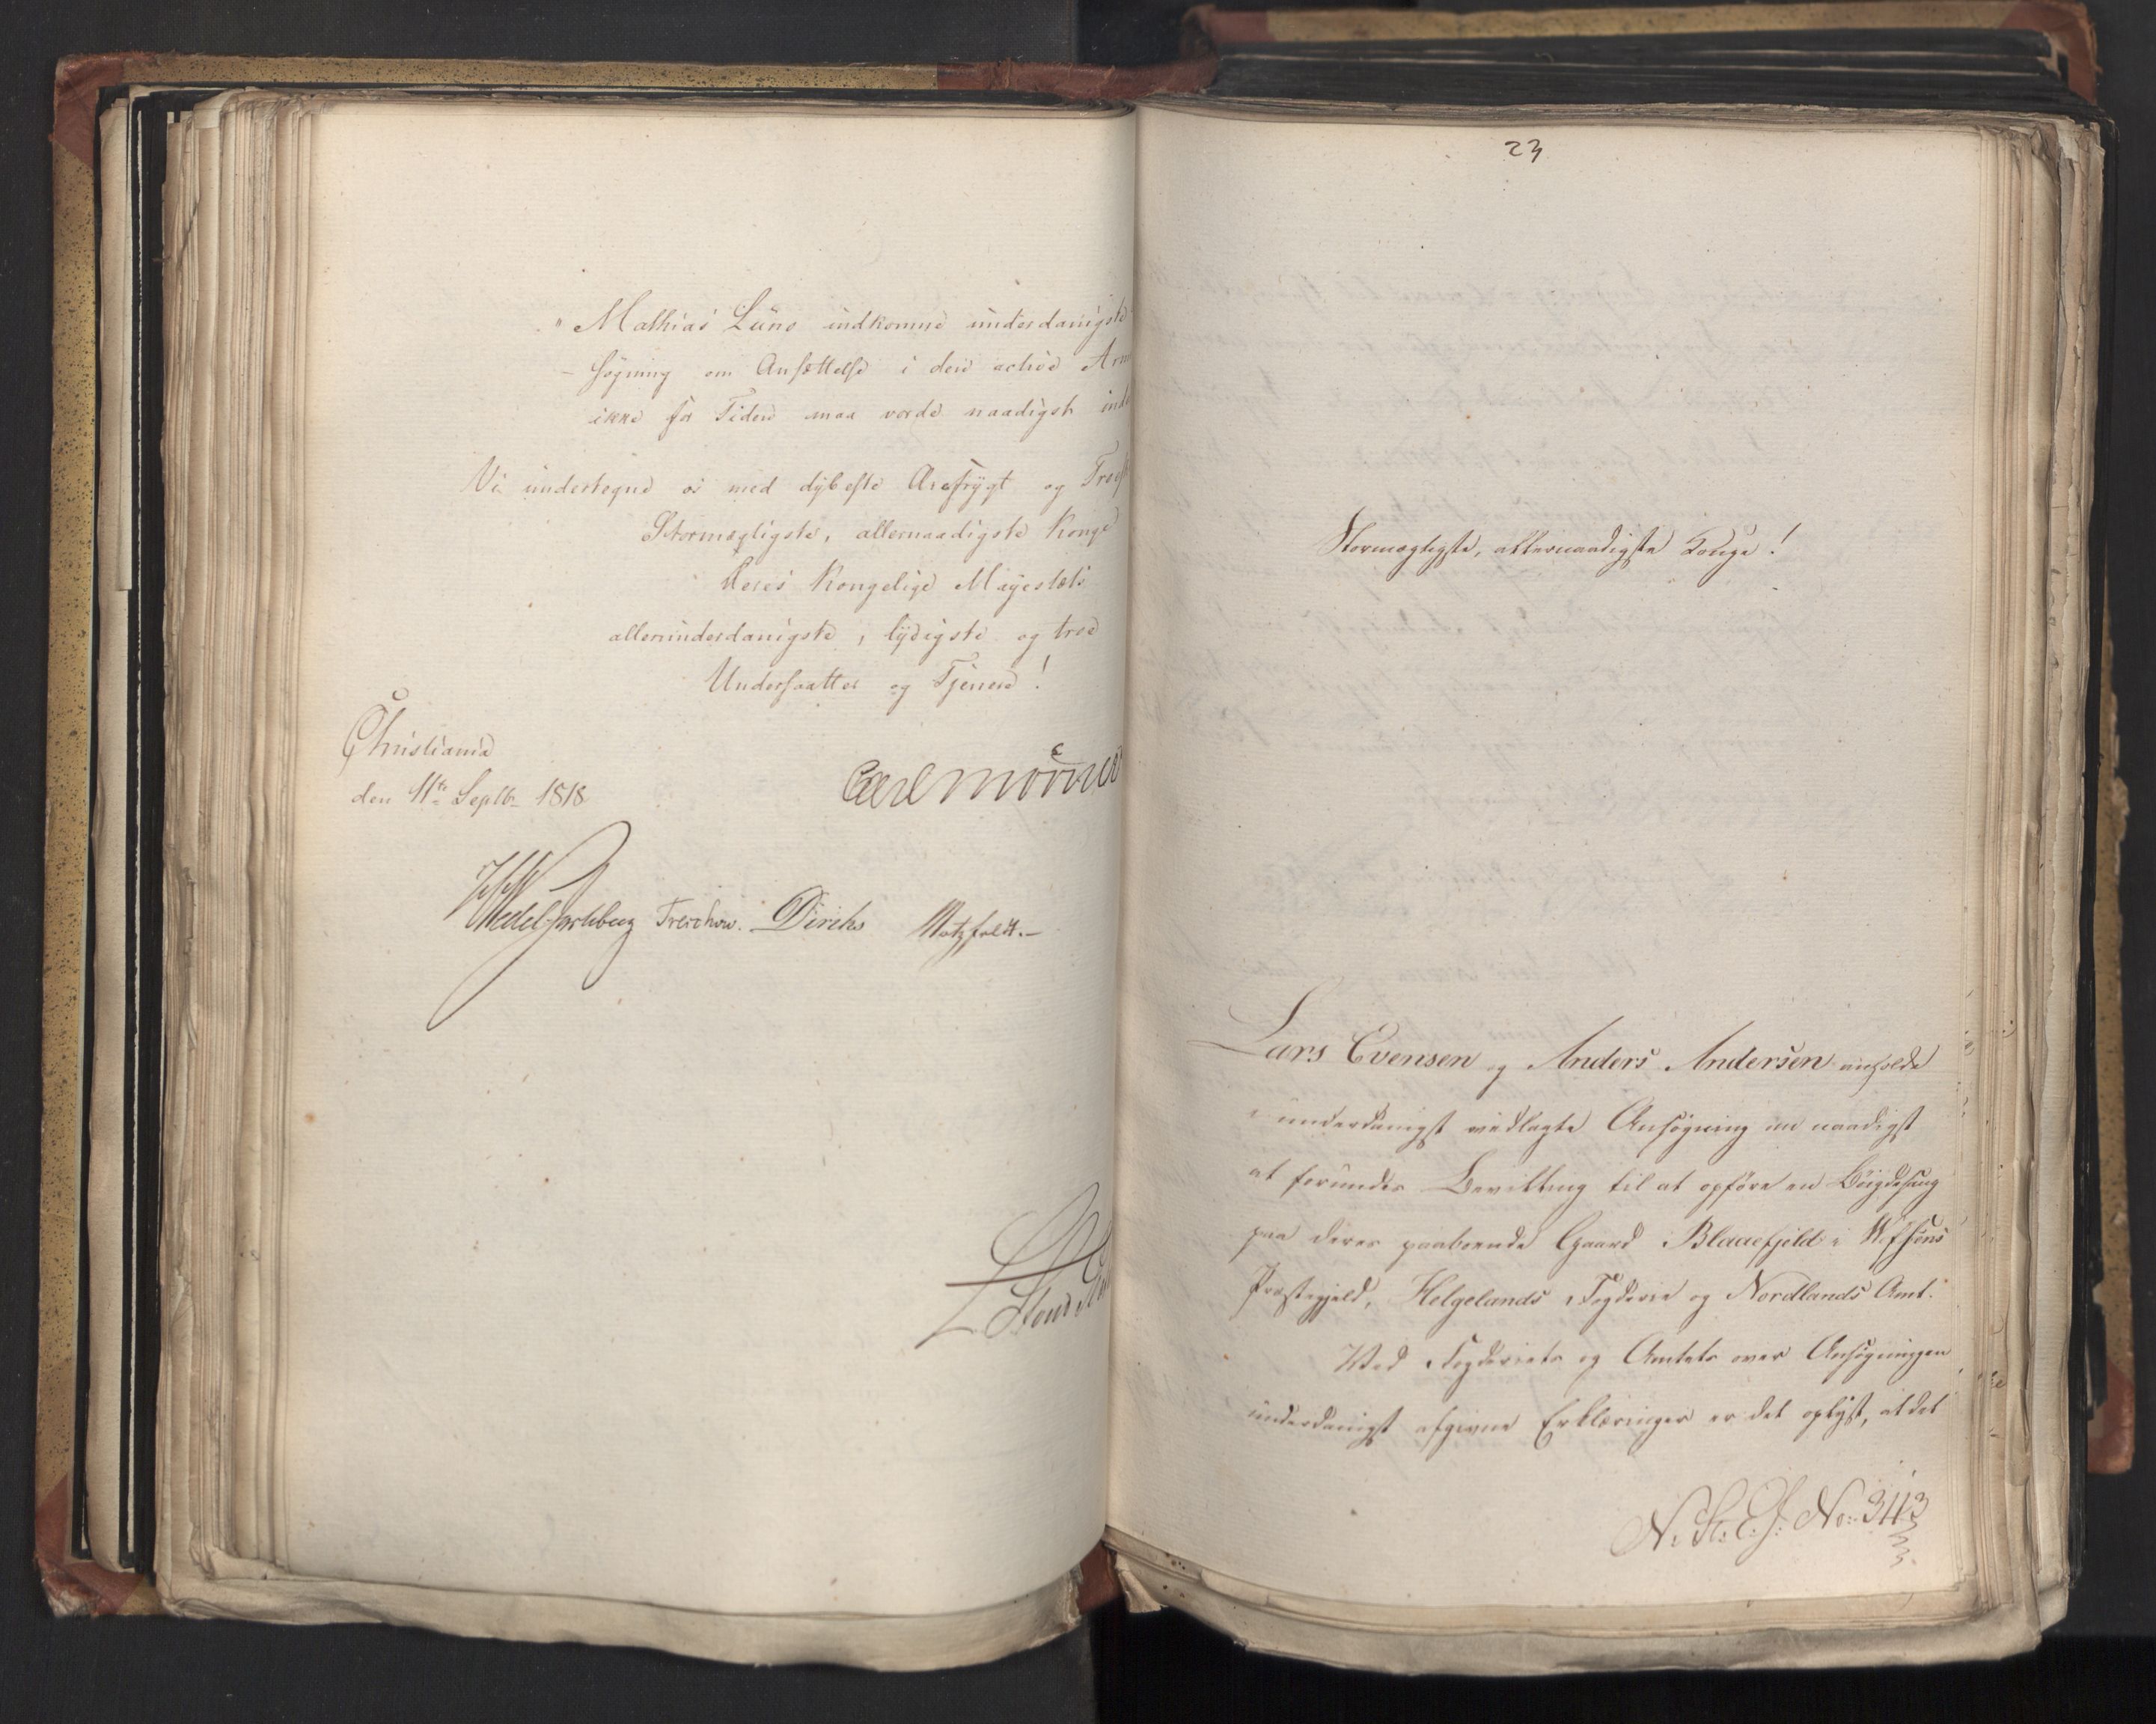 " Mathias Lüno indkomne underdanigste
- søgning om Ansættelse i den active
ikke for Tiden maa vorde naadigst
Vi undertegne os med dybeste Ærefrygt og
Stormægtigste, allernaadigste Konge
Deres Kongelige Majestæts
allerunderdanigste, lydigste og troe
Undersaatter og Tjenere!
Christiania
den 11te Septbr 1818
Carl Mörner
Wedel Jarlsberg Treschow. Diriks Motzfeldt.-
23
Stormægtigste, allernaadigste Konge!
Lars Evensen og Anders Andersen anholde
i underdanigst vedlagte Ansøgning om naadigst
at forundes Bevilling til at opføre en Bøigdesaug
paa deres paaboende Gaard Blaaefjeld i Wefsens
Præstegjeld, Helgelands Fogderie og Nordlands Amt.
Ved Fogderiets og Amtets over Ansøgningen
underdanigst afgivne Erklæringer er det oplyst, at det
N. St. C. J. No: 343